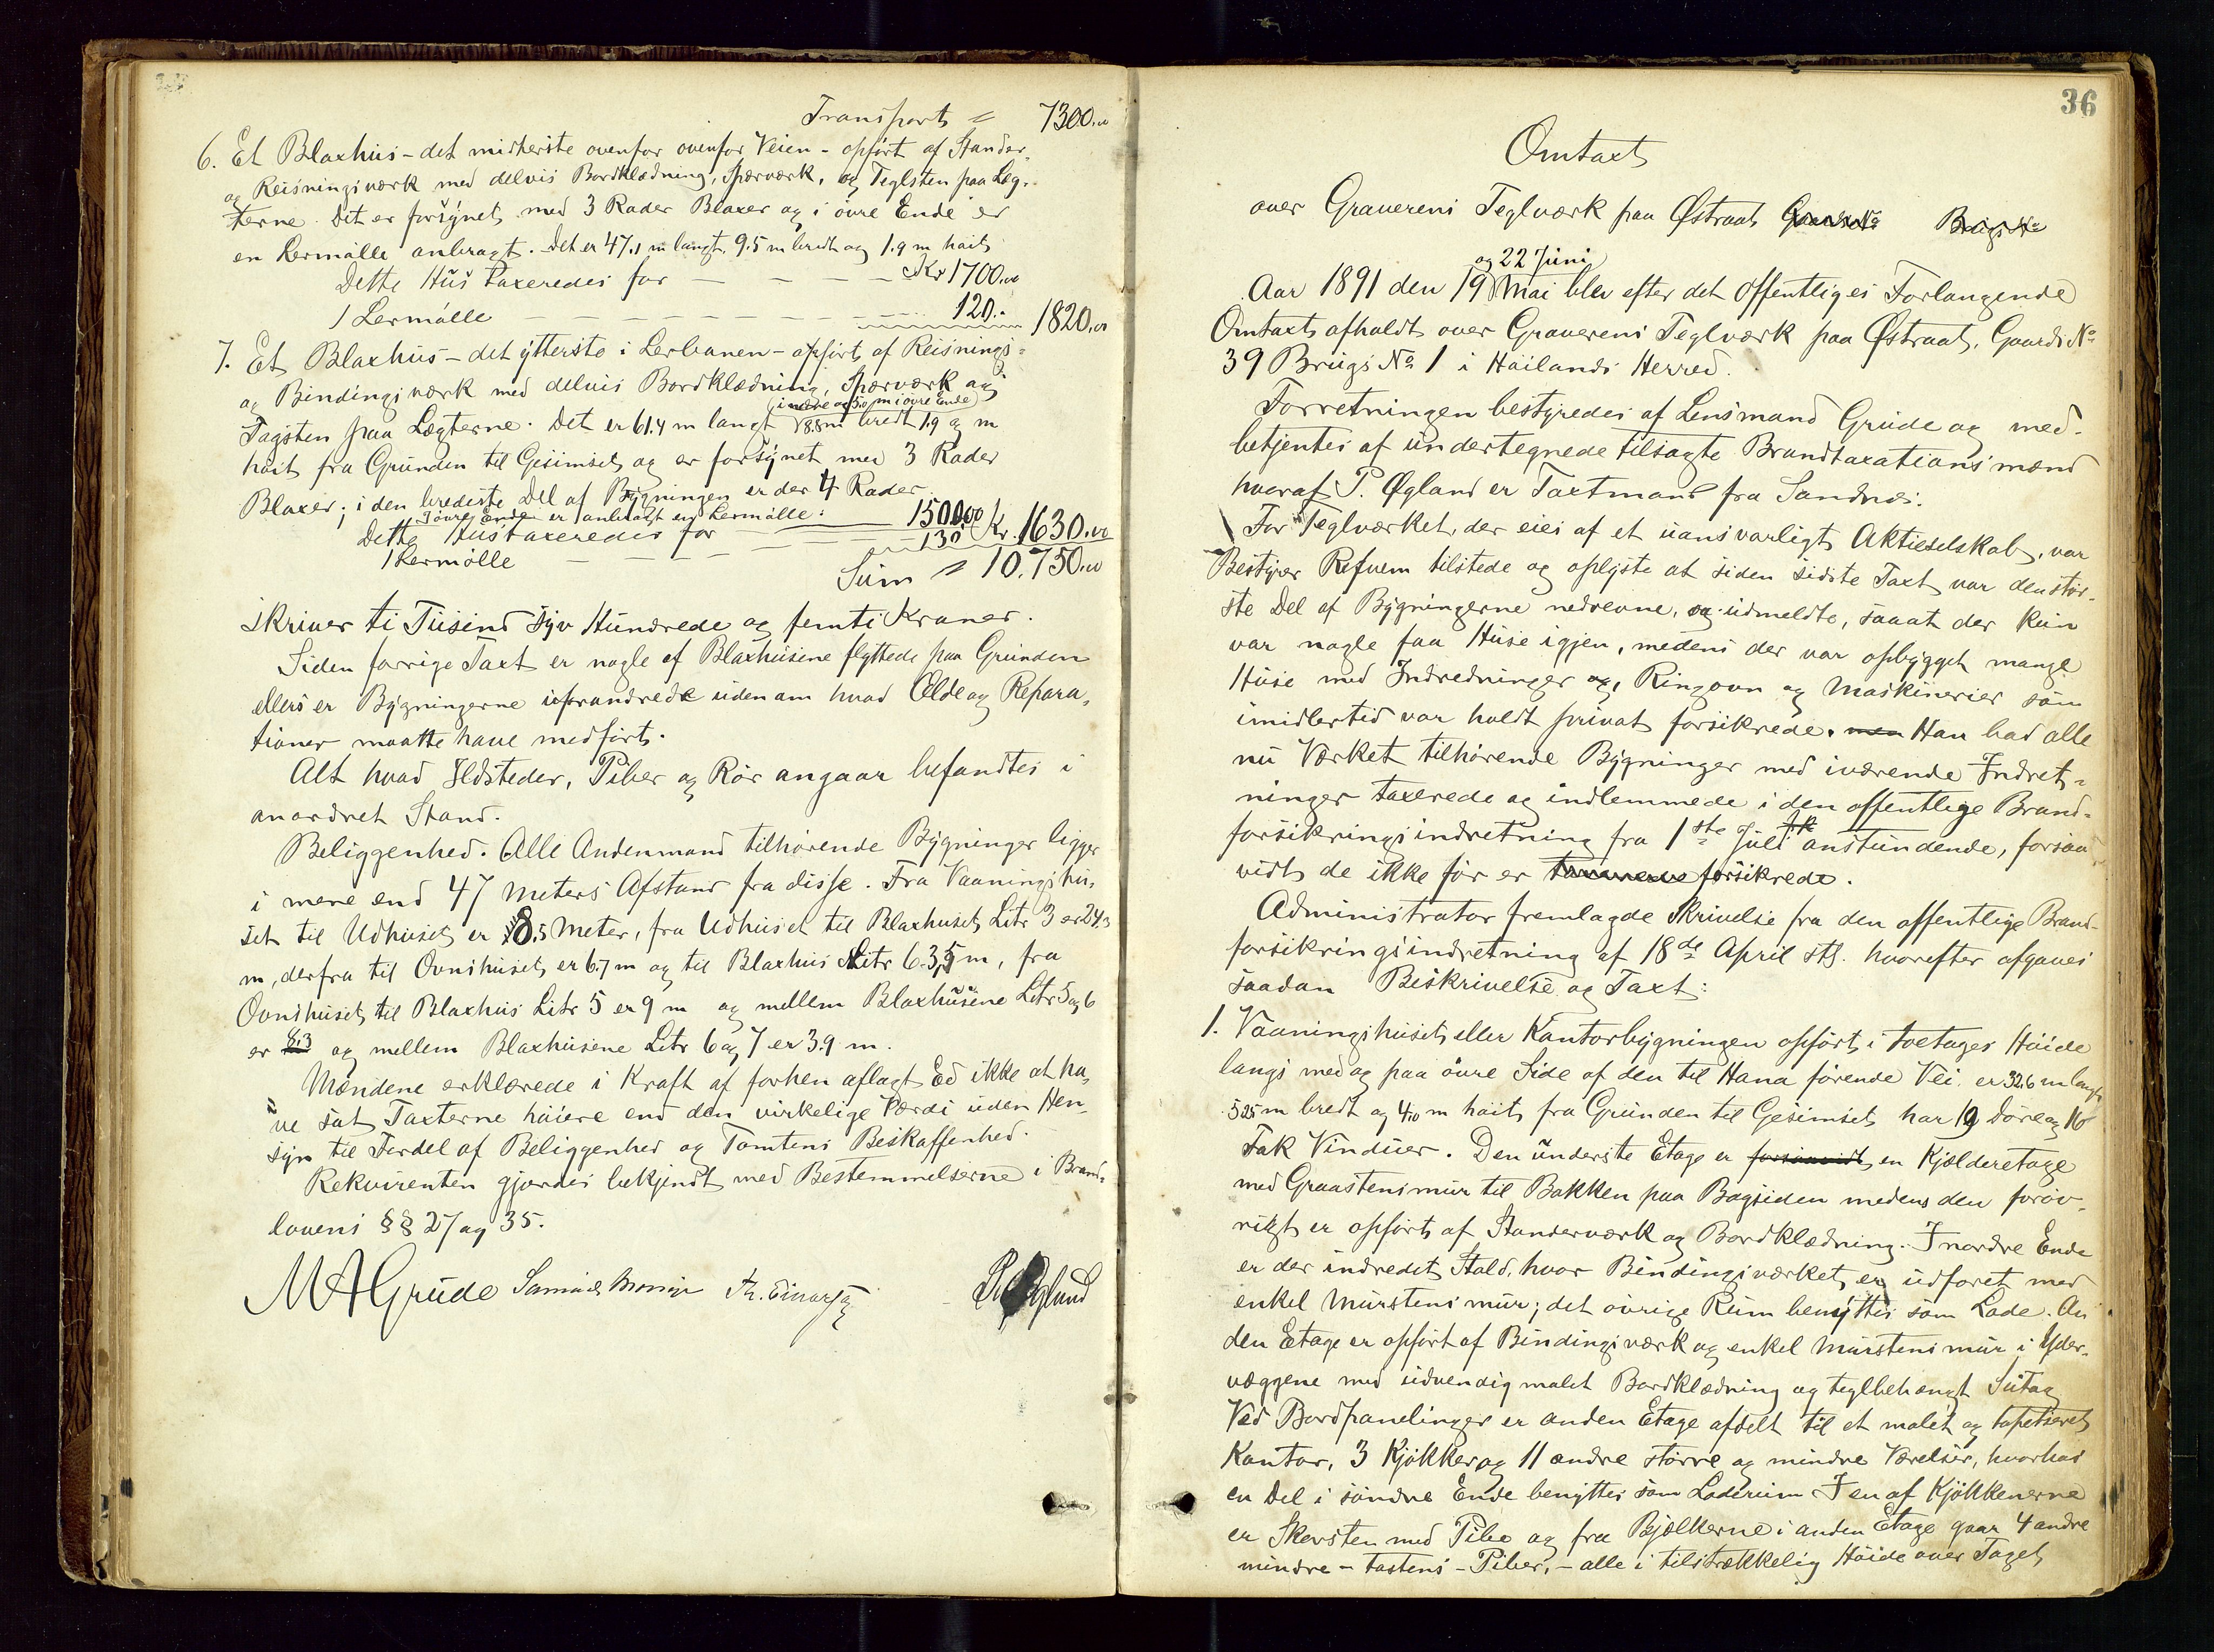 Transport = 7300.00
6. Et Blaxhus - det midterste ovenfor ovenfor Veien - opført af Stander,
og Reisningsværk med delvis Bordklædning, Spærværk, og Teglsten paa Læg-
terne. Det er forsynet med 3 Rader Blaxer og i øvre Ende er
en Lermølle anbragt. Det er 47.1 m langt, 9.5 m bredt og 1.9 m høit
Dette Hus taxeredes for — — — Kr 1700.00
1 Lermølle — — — 120.- 1820.00
7. Et Blaxhus - det ytterste i Lerbanen - opført af Reisnings=
og Bindingsværk med delvis Bordklædning, Spærværk og
i nedre og 5.0 m i øvre Ende
Tagsten paa Lægterne. Det er 61.4 m langt 8.8 m bredt 1.9 og m
høit fra Grunden til Gesimset og er forsynet med 3 Rader
Blaxer; i den bredeste Del af Bygningen er der 4 Rader
I øvre Ende er anbragt en Lermølle:
Dette Hus taxeredes for — 1500.00 Kr. 1630.00
1 Lermølle — — — 130
Sum = 10.750.00
skriver ti Tusind Syv Hundrede og femti Kroner.
Siden forrige Taxt er nogle af Blaxhusene flyttede paa Grunden
ellers er Bygningerne uforandrede uden om hvad Ælde og Repara,
tioner maatte have medført.
Alt hvad Ildsteder, Piber og Rør angaar befandtes i
anordnet Stand.
Beliggenhed. Alle Andenmand tilhørende Bygninger ligger
i mere end 47 Meters Afstand fra disse. Fra Vaaningshu,
set til Udhuset er 8.5 Meter, fra Udhuset til Blaxhuset Litr 3 er 24.3
m, derfra til Ovnshuset er 6.7 m og til Blaxhus Litr 6 3,5 m, fra
Ovnshuset til Blaxhus Litr 5 er 9 m og mellem Blaxhusene Litr 5 og 6
er 8.3 og mellem Blaxhusene Litr 6 og 7 er 3.9 m.
Mændene erklærede i Kraft af forhen aflagt Ed ikke at ha,
ve sat Taxterne høiere end den virkelige Værdi uden Hen,
syn til Fordel af Beliggenhed og Tomtens Beskaffenhed.
Rekvirenten gjordes bekjendt med Bestemmelserne i Brand=
lovens §§ 27 og 35.
MAGrude
36
Omtaxt
over Graverens Teglværk paa Østraat Gaards No Brugs No
og 22 Juni
Aar 1891 den 19 Mai blev efter det Offentliges Forlangende
Omtaxt afholdt over Graverens Teglværk paa Østraat, Gaards No
39 Brugs No 1 i Høilands Herred.
Forretningen bestyredes af Lensmand Grude og med-
betjentes af undertegnede tilsagte Brandtaxationsmænd
hvoraf P. Øgland er Taxtmand fra Sandnes.
For Teglværket, der eies af et uansvarligt Aktieselskab, var
Bestyrer Refvem tilstede og oplyste at siden sidste Taxt var den stør-
ste Del af Bygningerne nedrevne, og udmeldte, saaat der kun
var nogle faa Huse igjen, medens der var opbygget mange
Huse med Indredninger og, Ringovn og Maskinerier som
imidlertid var holdt privat forsikrede. men Han bad alle
nu Værket tilhørende Bygninger med iværende Indret-
ninger taxerede og indlemmede i den offentlige Brand-
forsikringsindretning fra 1ste Juli anstundende, forsaa
vidt de ikke før er forsikrede.
Administrator fremlagde Skrivelse fra den offentlige Brand-
forsikringsindretning af 18de April sts. hvorefter afgaves
saadan Beskrivelse og Taxt:
1. Vaaningshuset eller Kontorbygningen opført i toetages Høide
langs med og paa øvre Side af den til Hana førende Vei er 32.6 m langt
5.25 m bredt og 4.10 m høit fra Grunden til Gesimset har 19 Døre og 16
Fak Vinduer. Den underste Etage er forsaavidt en Kjælderetage
med Graastensmur til Bakken paa Bagsiden medens den forøv-
rigt er opført af Standerværk og Bordklædning. I nordre Ende
er der indredet Stald, hvor Bindingsværket er udforet med
enkel Murstens mur; det øvrige Rum benyttes som Lade. An
den Etage er opført af Bindingsværk og enkel Murstens mur i Yder-
væggene med udvendig malet Bordklædning og teglbehængt Sutag
Ved Bordpanelinger er anden Etage afdelt til et malet og tapetseret
Kontor, 3 Kjøkker og 11 andre større og mindre Værelser, hvorhos
en Del i søndre Ende benyttes som Laderum. I en af Kjøkkenerne
er Skorsten med Pibe og fra Bjælkerne i anden Etage gaar 4 andre
mindre - tostens - Piber, - alle i tilstrækkelig Høide over Taget